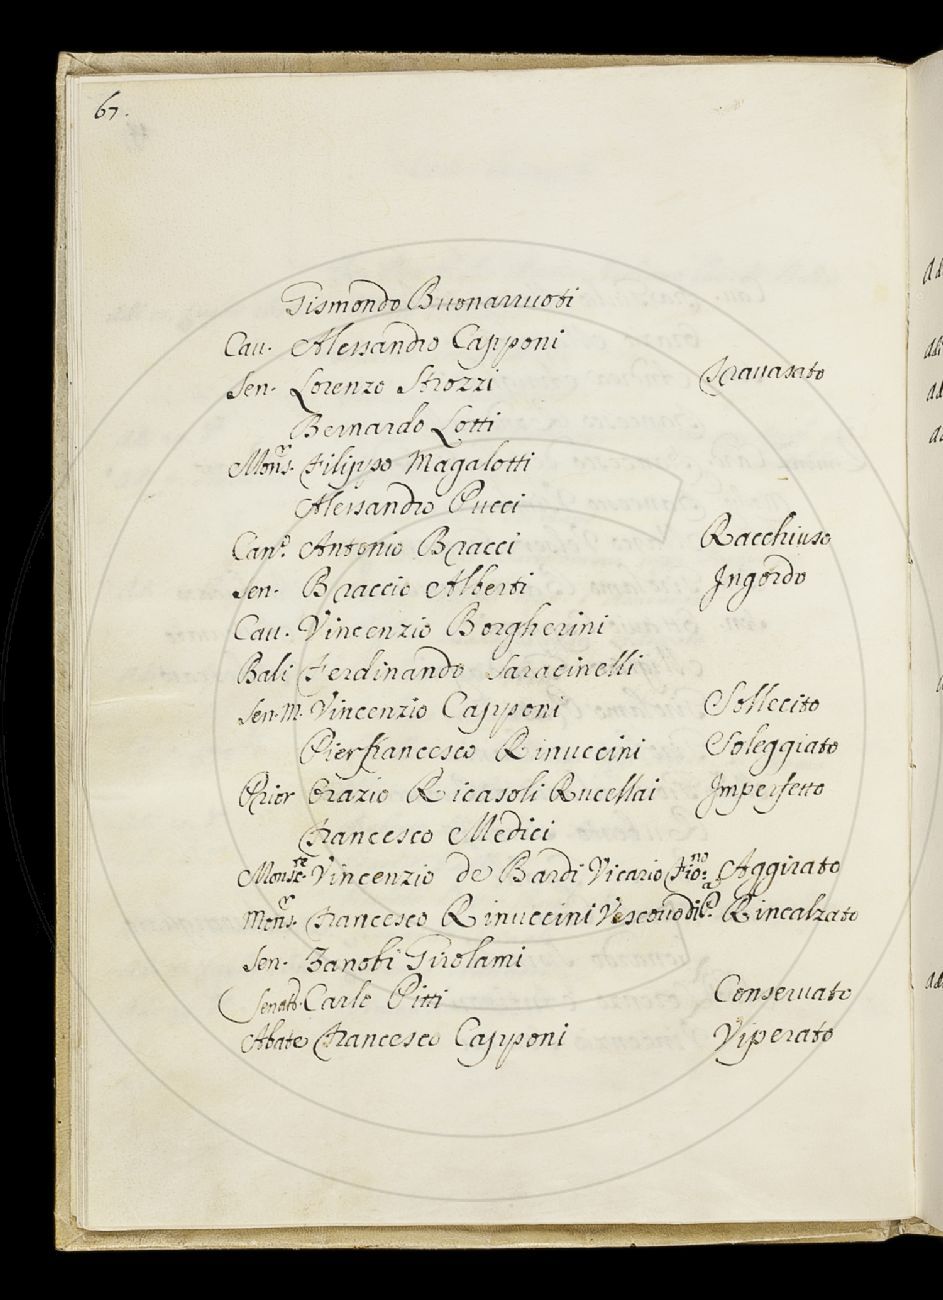 67.
Gismondo Buonarruoti
Cau. Alessandro Capponi
Sen. Lorenzo Strozzi Trauasato
Bernardo Lotti
Mons.r Filippo Magalotti
Alessandro Pucci
Can.o Antonio Bracci Racchiuso
Sen. Braccio Alberti Ingordo
Cau. Vincenzio Borgherini
Bali Ferdinando Saracinelli
Sen. M. Vincenzio Capponi Sollecito
Pierfrancesco Rinuccini Soleggiato
Prior Orazio Ricasoli Rucellai Imperfetto
Francesco Medici
Monsre. Vincenzio de Bardi Vicario Fio:no Aggirato
Mons.r Francesco Rinuccini Vescouo di P.a Rincalzato
Sen. Zanobi Girolami
Senato. Carlo Pitti Conseruato
Abate Francesco Capponi Viperato